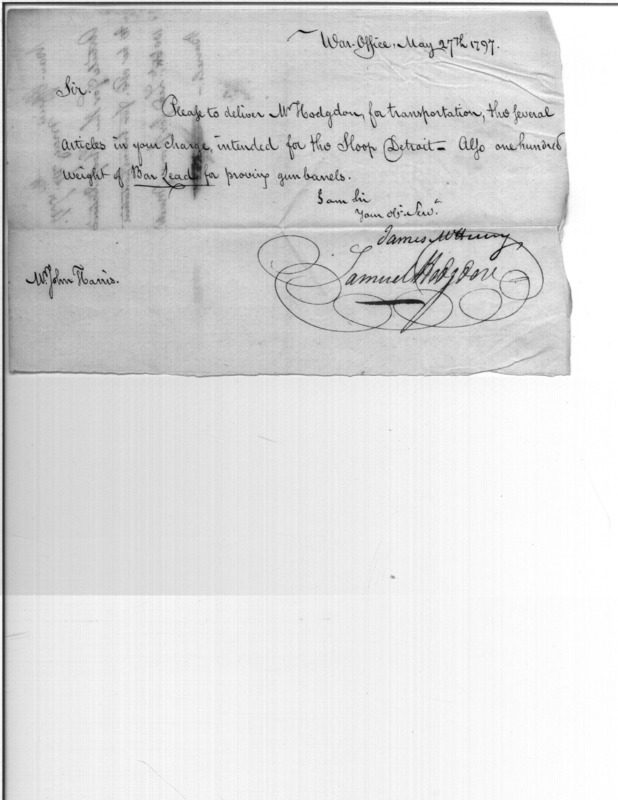 War-Office, May 27th 1797.
Sir.
Please to deliver Mr Hodgdon, for transportation, the several
Articles in your charge, intended for the Sloop Detroit - Also one hundred
weight of Bar Lead for proving gun barrels.
I am Sir
Your ob. Serv.t
James McHenry
Samuel Hodgdon
Mr John Harris.